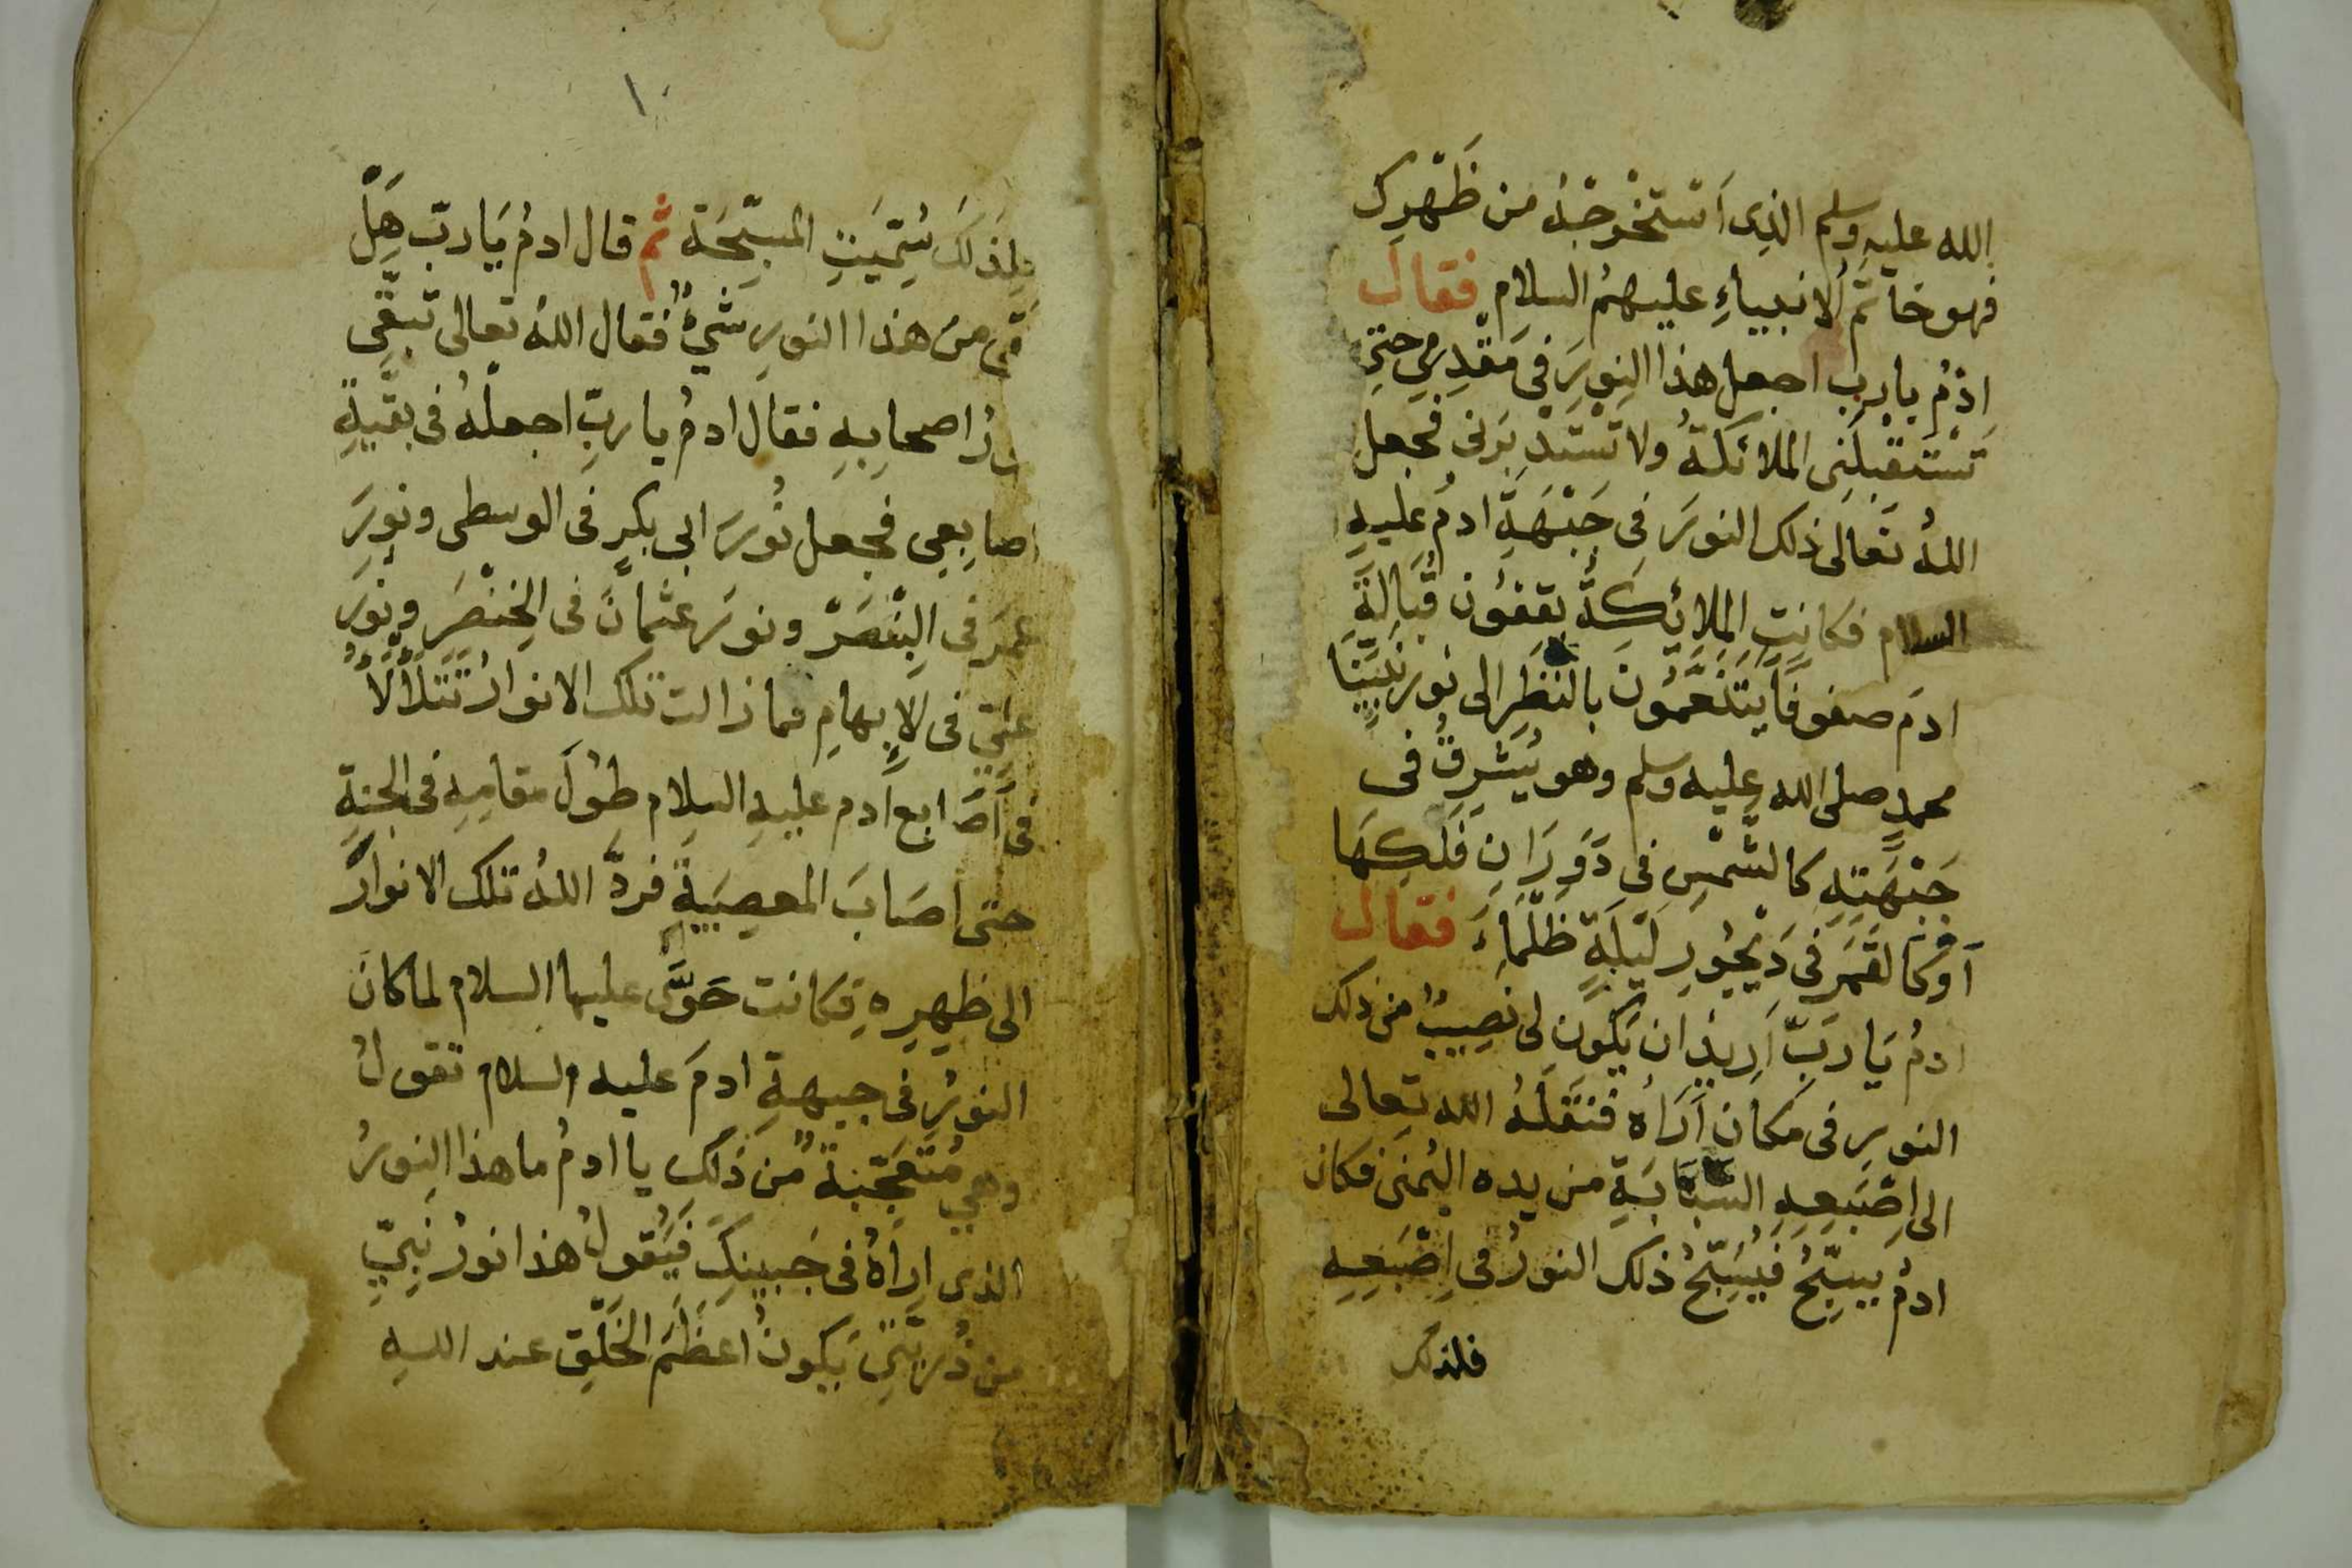 الله عليه وسلم الذى اَسْتَخْرِجُهُ من ظَهْرِك
فهو خاتَمُ الانبياءِ عليهمُ السلام فقال
ادمُ يارب اجعل هذا النورَ فى مَقْدِمِي حتى
تَسْتَقْبِلَنِى الملائكةُ ولا تَسْتَدْبِرَنى فجعل
اللهُ تَعالى ذلك النورَ فى جَبْهَةِ ادمُ عليهِ
السلام فكانتِ الملائِكَةُ يقفُون قُبَالَةَ
ادمَ صفوفًا يَتَنَعَّمُونَ بالنَظَرِ الى نورِ نَبِيِّنَا
محمدٍ صلى الله عليه وسلم وهو يُشْرِقُ فى
جَبْهَتِهِ كالشَمْسِ فى دَوَرَانِ فَلَكِهَا
اَوْ كالقَمَرِ فى دَيْجُورِ لَيْلَةٍ ظَلْمَاءَ فقال
ادمُ يَا رَبِّ اُرِيدُ ان يَكُونَ لى نصِيبٌ من ذلك
النورِ فى مكانٍ اَرَاهُ فنَقَلَهُ الله تعالى
الى اِصْبَعِهِ السَّبَّابَةِ من يده اليُمنَى فكان
ادمُ يسبِّحُ فَيُسَبِّحُ ذلك النورُ فى اِصْبَعِهِ
فلذلك
فلِذَلكَ سُمِّيَتِ المسبِّحَة ثم قال ادمُ يَا ربّ هَلْ
بقى من هذا النورِ شيءٌ فقال اللهُ تعالى تبقَّى
نورُ اصحابِهِ فقال ادمُ يا ربِّ اجعلْهُ فى بقيّةِ
اصابِعِى فجعل نُورَ ابى بكرٍ فى الوسطى ونورَ
عمرَ فى البِنْصَرِ ونورَ عثمانَ فى الخِنْصَرِ ونورَ
علىٍّ فى الاِبهامِ فما زالت تلك الانوارُ تَتَلَأْلَأُ
فى اَصَابع اَدم عليهِ السلام طُولَ مقامِهِ فى الجنةِ
حتى اصَابَ المعصِيَةِ فردَّ اللهُ تلك الانوارَ
الى ظهرِهِ فكانت حَوَّى عليها السلام لما كان
النورُ فى جبهةِ ادمَ عليه السلام تقولُ
وهى مُتَعَجِّبَةٌ من ذَلِكِ يا ادمُ ما هذا النورُ
الذى ارَاهُ فى جَبِينِكَ فَيَقُولُ هذا نورُ نَبِيٍّ
من ذُرِيَّتِى يَكونُ اَعظَمَ الخَلْقِ عند اللهِ